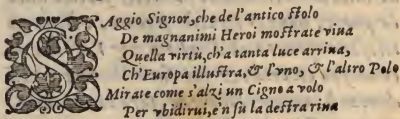 SAggio Signor, che de l'antico stolo
De magnanimi Heroi mostrate viua
Quella virtù, ch'a tanta luce arriua,
Ch'Europa illustra, & l'vno, & l'altro Polo
Mirate come s'alzi un Cigno a volo
Per vbidirui, e'n su la destra riua